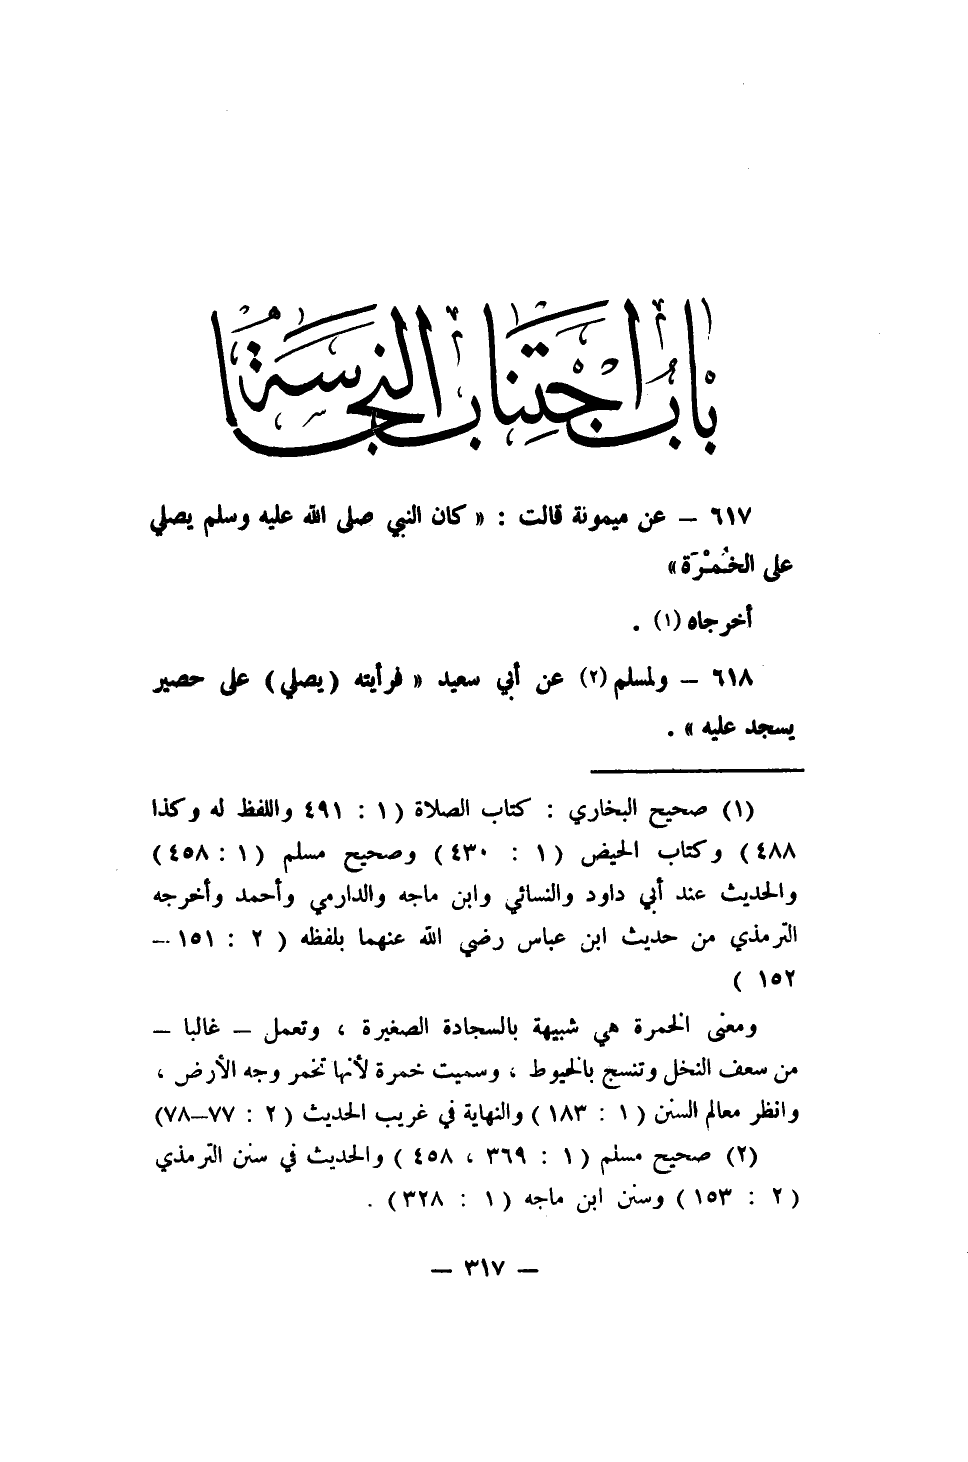 باب اجتناب النجاسة
٦١٧ – عن ميمونة قالت : « كان النبي صلى الله عليه وسلم يصلي
على الخُمْرَة »
أخرجاه (١) .
٦١٨ – ولمسلم (٢) عن أبي سعيد « فرأيته (يصلي) على حصير
يسجد عليه » .
(١) صحيح البخاري : كتاب الصلاة (١ : ٤٩١ واللفظ له وكذا
٤٨٨) وكتاب الحيض (١ : ٤٣٠) وصحيح مسلم (١ : ٤٥٨)
والحديث عند أبي داود والنسائي وابن ماجه والدارمي وأحمد وأخرجه
الترمذي من حديث ابن عباس رضي الله عنهما بلفظه (٢ : ١٥١ –
١٥٢ )
ومعنى الخمرة هي شبيهة بالسجادة الصغيرة ، وتعمل – غالبا –
من سعف النخل وتنسج بالخيوط ، وسميت خمرة لأنها تخمر وجه الأرض ،
وانظر معالم السنن (١ : ١٨٣) والنهاية في غريب الحديث (٢ : ٧٧–٧٨)
(٢) صحيح مسلم (١ : ٣٦٩ ، ٤٥٨) والحديث في سنن الترمذي
(٢ : ١٥٣) وسنن ابن ماجه (١ : ٣٢٨) .
– ٣١٧ –